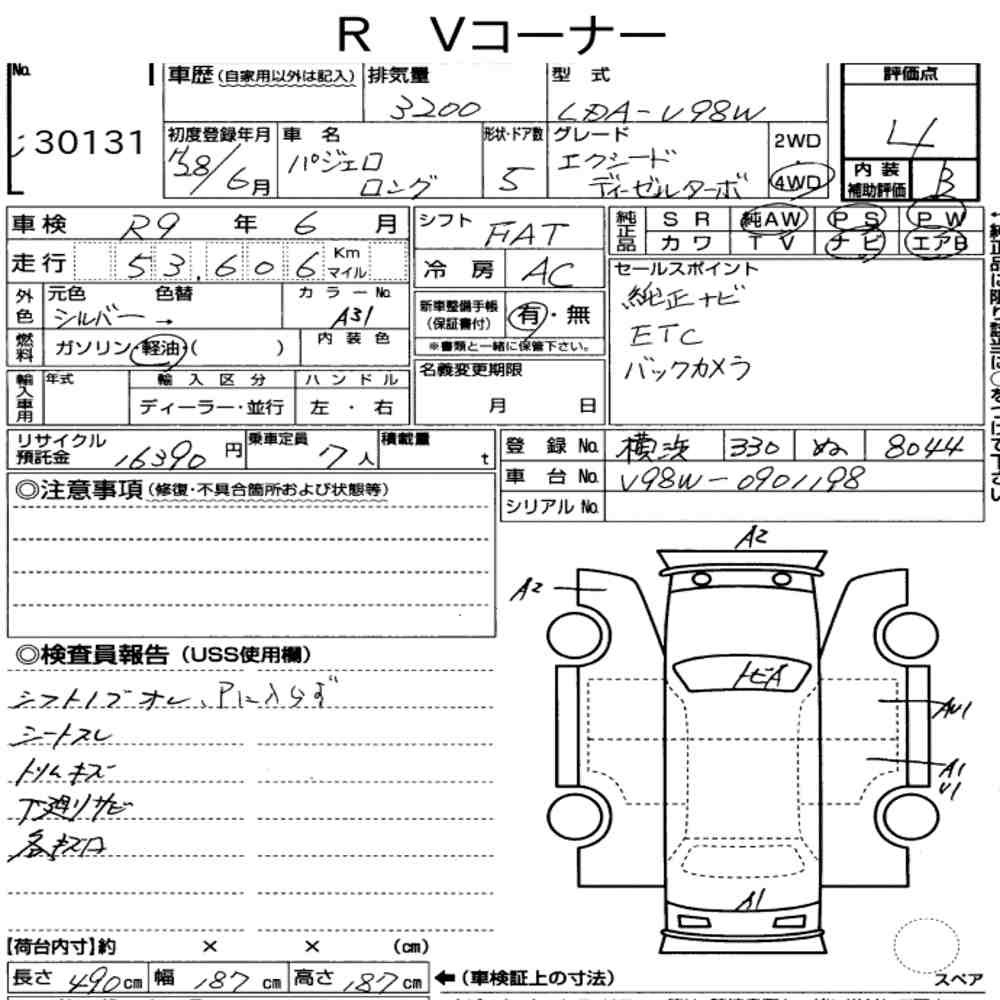 R Vコーナー
No.
30131
車歴(自家用以外は記入)
排気量
3200
型式
LDA-V98W
評価点
4
内装補助評価
B
初度登録年月
28/6月
車名
パジェロ
ロング
形状・ドア数
5
グレード
エクシード
ディーゼルターボ
2WD
4WD
車検 R9年 6月
走行 53,606 Km マイル
外色
元色 シルバー → 色替
カラーNo. A31
燃料
ガソリン・軽油・( )
内装色
輸入車用
年式
輸入区分
ディーラー・並行
ハンドル
左・右
シフト FAT
冷房 AC
新車整備手帳(保証書付)
有・無
※書類と一緒に保管下さい。
名義変更期限
月 日
純正品
SR 純AW PS PW
カワ TV ナビ エアB
セールスポイント
純正ナビ
ETC
バックカメラ
リサイクル預託金 16390円
乗車定員 7人
積載量 t
登録No. 横浜 330 ぬ 8044
車台No. V98W-0901198
シリアルNo.
◎注意事項(修復・不具合箇所および状態等)
◎検査員報告(USS使用欄)
シフトノブオレ、Pに入らず
シートスレ
トリムキズ
下廻りサビ
A2
A2
トビA
AU1
A1
U1
A1
【荷台内寸】約 × × (cm)
長さ 490cm 幅 187cm 高さ 187cm
←(車検証上の寸法)
スペア